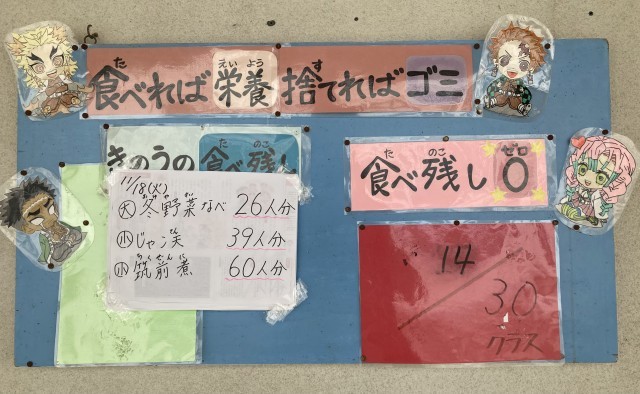 食べれば栄養 捨てればゴミ
きのうの食べ残し
食べ残し0
11/18(火)
大 冬野菜なべ 26人分
小 じゃこ天 39人分
小 筑前煮 60人分
14/30
クラス